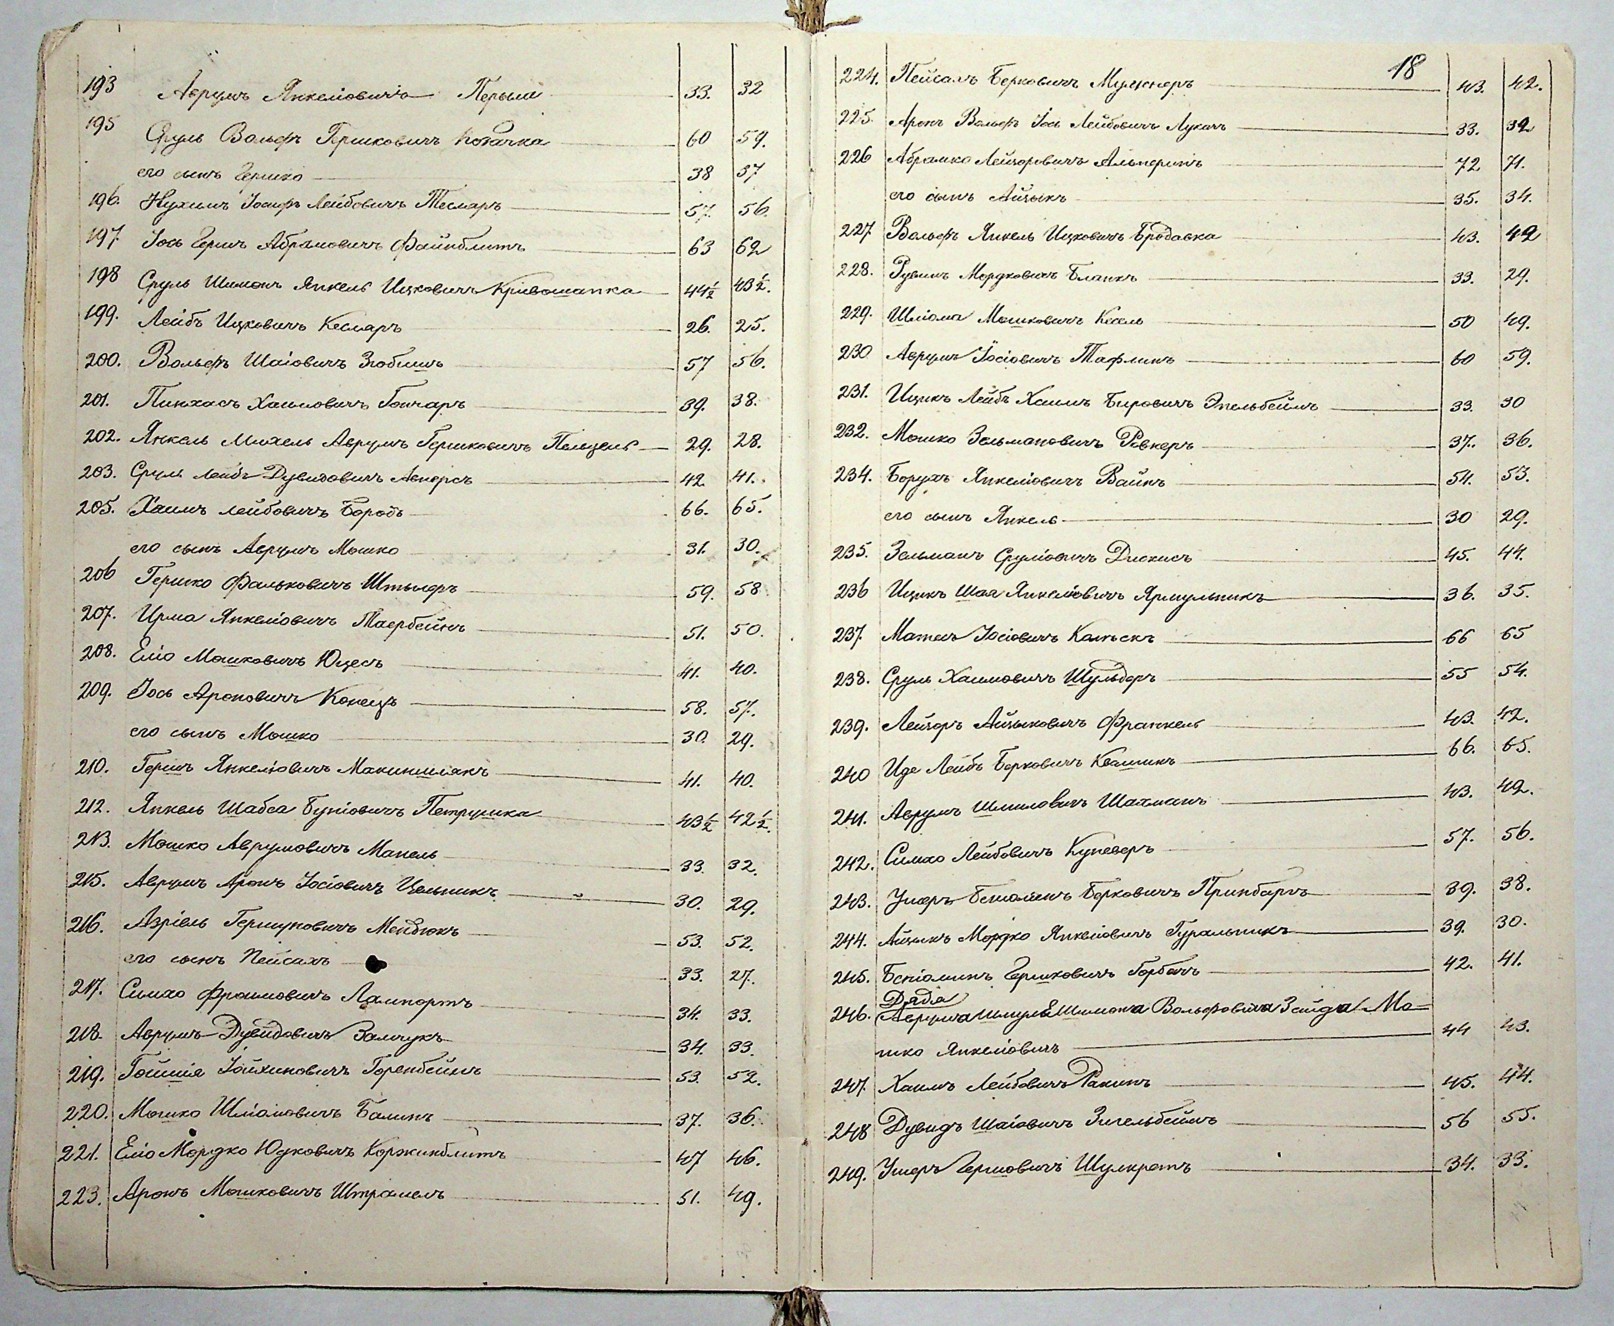 193 Аврумъ Янкеліовичъ Перыма 33. 32
195 Сруль Вольфъ Гершковичъ Ковачка 60 59.
его сынъ Гершко 38 37
196. Нухимъ Іосифъ Лейбовичъ Тесмаръ 57. 56.
197 Іось Гершъ Абрамовичъ Файнблитъ 63 62
198 Сруль Шимонъ Янкель Ицковичъ Кривошапка 44½ 43½.
199. Лейбъ Ицковичъ Кесмаръ 26. 25.
200. Вольфъ Шаіовичъ 57 56.
201. Пинхасъ Хаимовичъ Гончаръ 39. 38.
202. Янкель Михель Аврумъ Гершковичъ Пельцель 29. 28.
203. Сруль Лейбъ Дувидовичъ 42 41.
205. Хаимъ Лейбовичъ Бородъ 66. 65.
его сынъ Аврумъ Мошко 31. 30.
206 Гершко Фальковичъ Штылеръ 59. 58
207. Ирма Янкеліовичъ Таербейнъ 51. 50.
208. Еліо Мошковичъ Юцесъ 41. 40.
209. Іось Ароновичъ Конецъ 58. 57.
его сынъ Мошко 30. 29.
210. Гершъ Янкеліовичъ Макишилянъ 41. 40.
212. Янкель Шабса Буніовичъ Петрушка 43½ 42½.
213. Мошко Аврумовичъ Манель 33. 32.
215. Аврумъ Аронъ Іосіовичъ Цельникъ 30. 29.
216. Азріель Гершуновичъ Мейтюкъ 53. 52.
его сынъ Пейсахъ 33. 27.
217. Симхо Фроимовичъ Лампортъ 34. 33.
218. Аврумъ Дувидовичъ Замчукъ 34. 33.
219. Гойшіе Іойхиновичъ Горенбейнъ 53. 52.
220. Мошко Шліомовичъ Балинъ 37. 36.
221. Еліо Мордко Юдковичъ Коржинблитъ 47 46.
223. Аронъ Мошковичъ Штрамелъ 51. 49.
18
224. Пейсахъ Берковичъ Мучнеръ 43. 42.
225. Аронъ Вольфъ Іось Лейбовичъ Лукачъ 33. 32
226 Абрамко Лейзоровичъ Альперинъ 72 71.
его сынъ Айзыкъ 35. 34.
227. Вольфъ Янкель Ицковичъ Бродавка 43. 42
228. Рувинъ Мордковичъ Бланкъ 33. 29.
229. Шліома Мошковичъ Кесель 50 49.
230 Аврумъ Іосіовичъ Тафлинъ 60 59.
231. Ицикъ Лейбъ Хаимъ Бировичъ Эпельбеймъ 33. 30
232. Мошко Зельмановичъ Ровнеръ 37. 36.
234. Борухъ Янкеліовичъ Вайнъ 54. 53.
его сынъ Янкель 30 29.
235. Зельманъ Сруліовичъ 45. 44.
236 Ицикъ Шая Янкеліовичъ Ярмульникъ 36. 35.
237. Матесъ Іосіовичъ 66 65
238. Сруль Хаимовичъ Шульберъ 55 54.
239. Лейзоръ Айзыковичъ Франкель 43. 42.
240 Иде Лейбъ Берковичъ Квашникъ 66. 65.
241. Аврумъ Шмиловичъ Шахманъ 43. 42.
242. Симхо Лейбовичъ Куневеръ 57. 56.
243. Ушеръ Беніоминъ Берковичъ Гринбаргъ 39. 38.
244. Айзыкъ Мордко Янкеліовичъ Гуральникъ 39. 30.
245. Беніоминъ Гершковичъ Горбачъ 42. 41.
Дядя
246. Аврума Шмуля Шимона Вольфовича Зейда Мо-
шко Янкеліовичъ 44 43.
247. Хаимъ Лейбовичъ Ракинъ 45. 44.
248 Дувидъ Шаіовичъ Зигельбеймъ 56 55.
249. Ушеръ Гершовичъ Шулкретъ 34. 33.